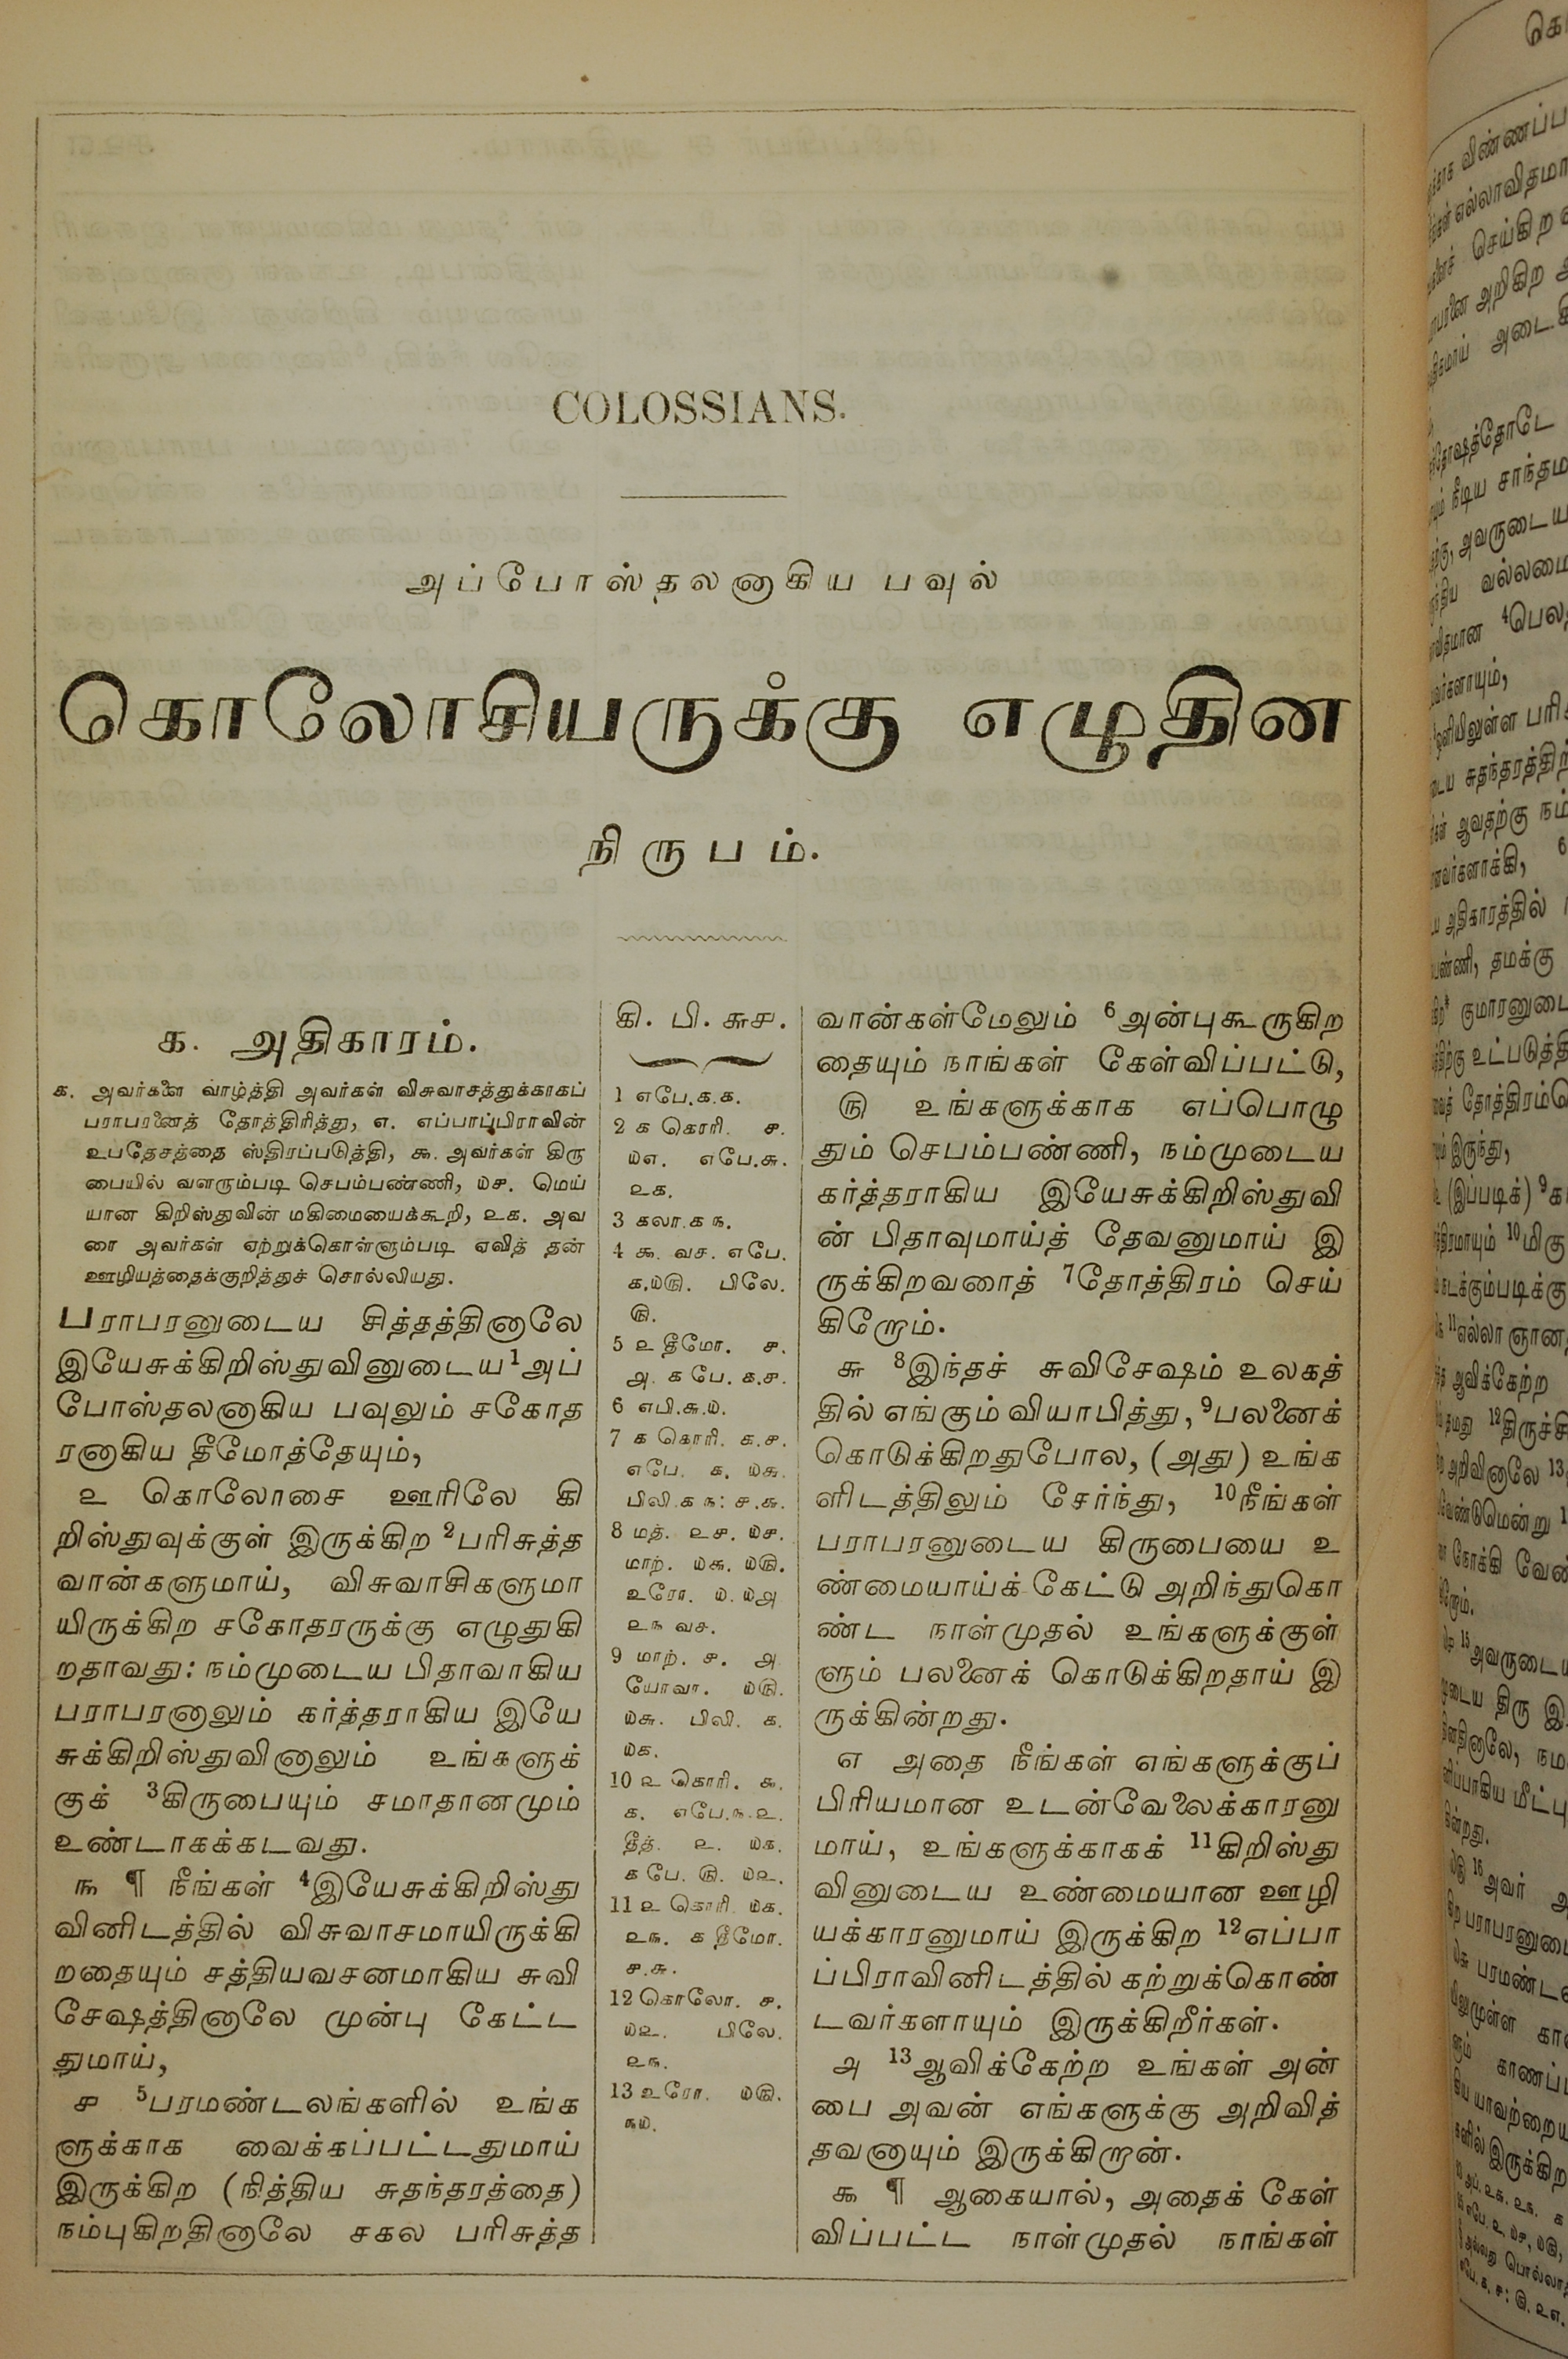 COLOSSIANS.
அப்போஸ்தலனாகிய பவுல்
கொலோசியருக்கு எழுதின
நிருபம்.
௧. அதிகாரம்.
௧. அவர்களை வாழ்த்தி அவர்கள் விசுவாசத்துக்காகப்
பராபரனைத் தோத்திரித்து, ௭. எப்பாப்பிராவின்
உபதேசத்தை ஸ்திரப்படுத்தி, ௯. அவர்கள் கிரு
பையில் வளரும்படி செபம்பண்ணி, ௰௪. மெய்
யான கிறிஸ்துவின் மகிமையைக்கூறி, ௨௧. அவ
ரை அவர்கள் ஏற்றுக்கொள்ளும்படி ஏவித் தன்
ஊழியத்தைக்குறித்துச் சொல்லியது.
பராபரனுடைய சித்தத்தினாலே
இயேசுக்கிறிஸ்துவினுடைய 1அப்
போஸ்தலனாகிய பவுலும் சகோத
ரனாகிய தீமோத்தேயும்,
௨ கொலோசை ஊரிலே கி
றிஸ்துவுக்குள் இருக்கிற 2பரிசுத்த
வான்களுமாய், விசுவாசிகளுமா
யிருக்கிற சகோதரருக்கு எழுதுகி
றதாவது: நம்முடைய பிதாவாகிய
பராபரனாலும் கர்த்தராகிய இயே
சுக்கிறிஸ்துவினாலும் உங்களுக்
குக் 3கிருபையும் சமாதானமும்
உண்டாகக்கடவது.
௩ ¶ நீங்கள் 4இயேசுக்கிறிஸ்து
வினிடத்தில் விசுவாசமாயிருக்கி
றதையும் சத்தியவசனமாகிய சுவி
சேஷத்தினாலே முன்பு கேட்ட
துமாய்,
௪ 5பரமண்டலங்களில் உங்க
ளுக்காக வைக்கப்பட்டதுமாய்
இருக்கிற (நித்திய சுதந்தரத்தை)
நம்புகிறதினாலே சகல பரிசுத்த
கி. பி. ௬௪.
1 எபே.௧.௧.
2 ௧ கொரி. ௪.
௰௭. எபே.௬.
௨௧.
3 கலா.௧ ௩.
4 ௯. வச. எபே.
௧.௰௫. பிலே.
௫.
5 ௨ தீமோ. ௪.
௮. ௧ பே. ௧.௪.
6 எபி.௬.௰.
7 ௧ கொரி. ௧.௪.
எபே. ௧. ௰௬.
பிலி.௧ ௩: ௪.௬.
8 மத். ௨௪. ௰௪.
மாற். ௰௬. ௰௫.
உரோ. ௰. ௰௮
௨௩ வச.
9 மாற். ௪. ௮
யோவா. ௰௫.
௰௬. பிலி. ௧.
௰௧.
10 ௨ கொரி. ௬.
௧. எபே.௩.௨.
தீத். ௨. ௰௧.
௧ பே. ௫. ௰௨.
11 ௨ கொரி ௰௧.
௨௩. ௧ தீமோ.
௪.௬.
12 கொலோ. ௪.
௰௨. பிலே.
௨௩.
13 உரோ. ௰௫.
௩௰.
வான்கள்மேலும் 6அன்புகூருகிற
தையும் நாங்கள் கேள்விப்பட்டு,
௫ உங்களுக்காக எப்பொழு
தும் செபம்பண்ணி, நம்முடைய
கர்த்தராகிய இயேசுக்கிறிஸ்துவி
ன் பிதாவுமாய்த் தேவனுமாய் இ
ருக்கிறவரைத் 7தோத்திரம் செய்
கிறோம்.
௬ 8இந்தச் சுவிசேஷம் உலகத்
தில் எங்கும் வியாபித்து, 9பலனைக்
கொடுக்கிறதுபோல, (அது) உங்க
ளிடத்திலும் சேர்ந்து, 10நீங்கள்
பராபரனுடைய கிருபையை உ
ண்மையாய்க் கேட்டு அறிந்துகொ
ண்ட நாள்முதல் உங்களுக்குள்
ளும் பலனைக் கொடுக்கிறதாய் இ
ருக்கின்றது.
௭ அதை நீங்கள் எங்களுக்குப்
பிரியமான உடன்வேலைக்காரனு
மாய், உங்களுக்காகக் 11கிறிஸ்து
வினுடைய உண்மையான ஊழி
யக்காரனுமாய் இருக்கிற 12எப்பா
ப்பிராவினிடத்தில் கற்றுக்கொண்
டவர்களாயும் இருக்கிறீர்கள்.
௮ 13ஆவிக்கேற்ற உங்கள் அன்
பை அவன் எங்களுக்கு அறிவித்
தவனாயும் இருக்கிறான்.
௯ ¶ ஆகையால், அதைக் கேள்
விப்பட்ட நாள்முதல் நாங்கள்